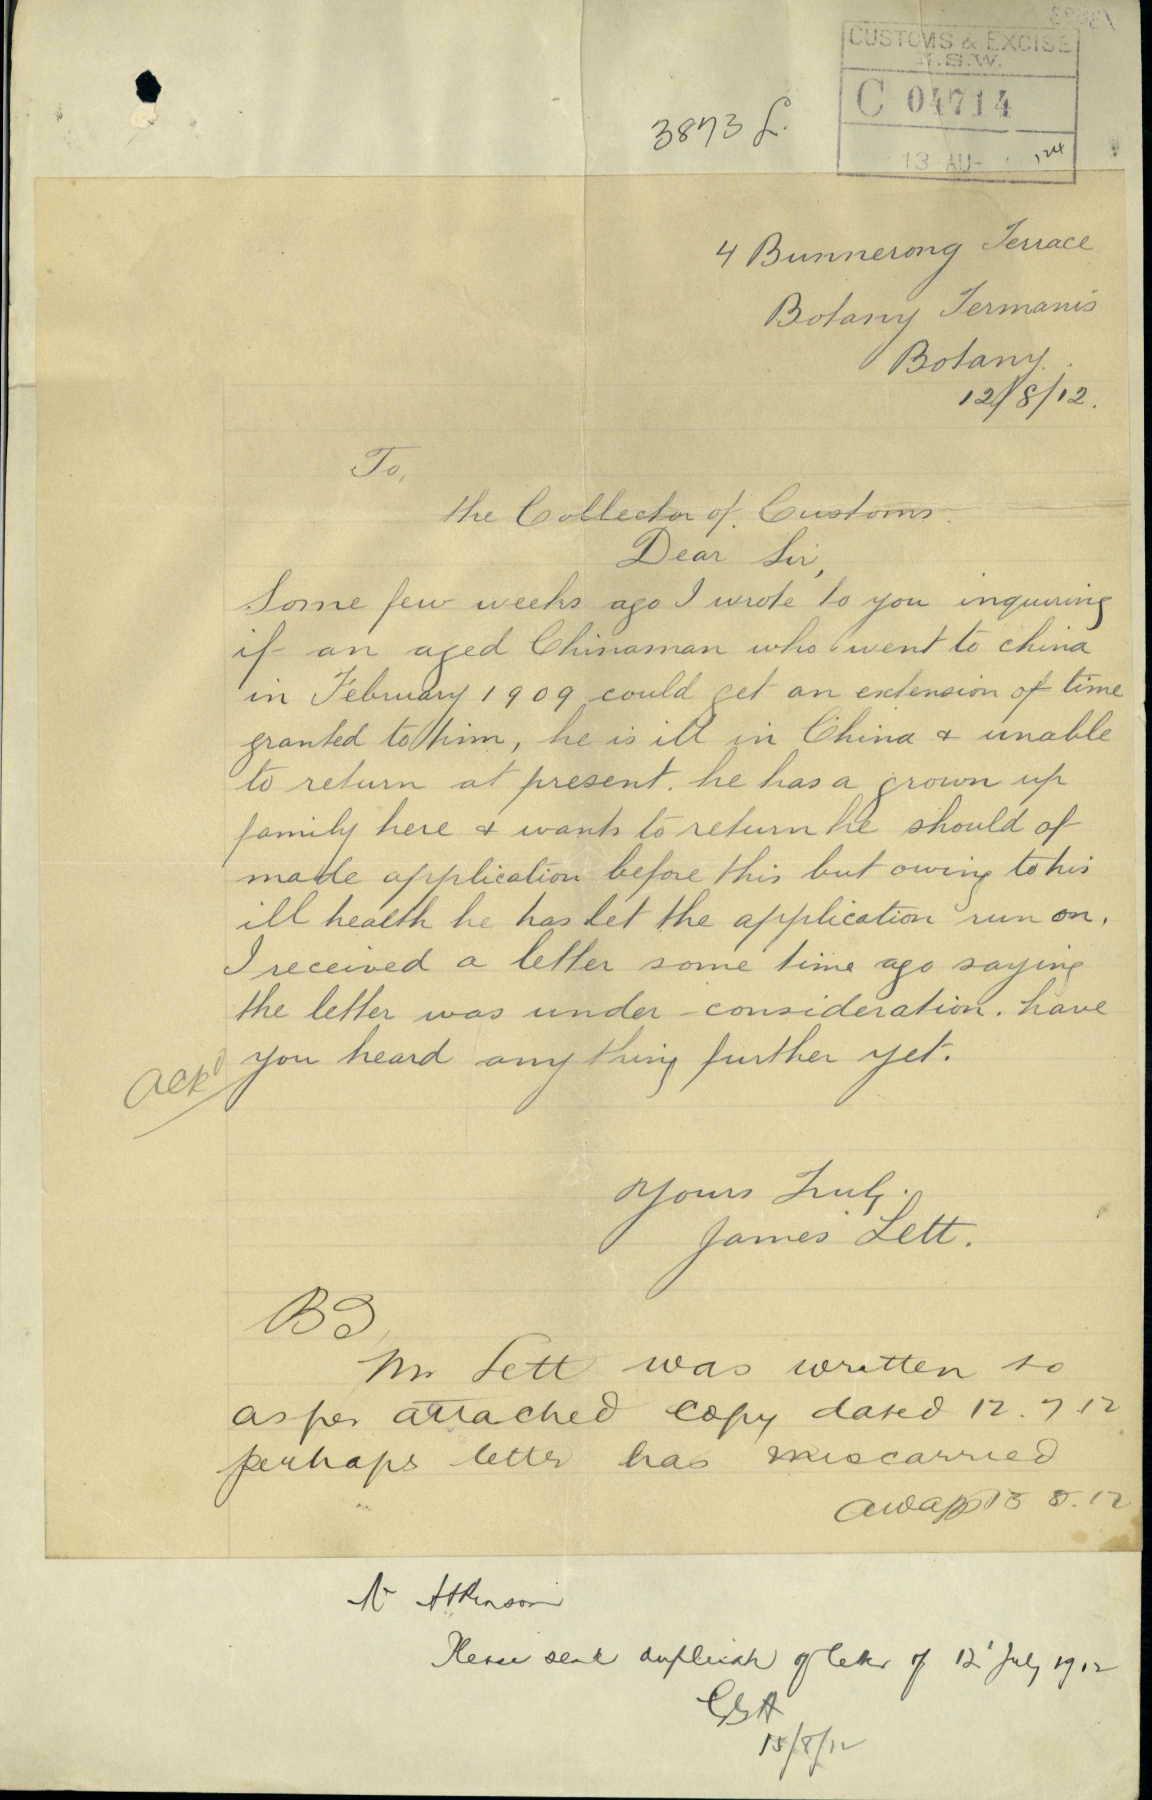 CUSTOMS & EXCISE
N.S.W.
C 04714
13 AU-
3873 L.
4 Bunnerong Terrace
Botany Termanis
Botany.
12/8/12.
To,
the Collector of Customs.
Dear Sir,
Some few weeks ago I wrote to you inquiring
if an aged Chinaman who went to china
in February 1909 could get an extension of time
granted to him, he is ill in China & unable
to return at present. he has a grown up
family here & wants to return he should of
made application before this but owing to his
ill health he has let the application run on.
I received a letter some time ago saying
the letter was under consideration. have
you heard any thing further yet.
Ackd
Yours Truly.
James Lett.
Mr Lett was written to
as per attached copy dated 12.7.12
perhaps letter has miscarried
8.12
Mr Atkinson
Please send duplicate of letter of 12' July 1912
15/8/12